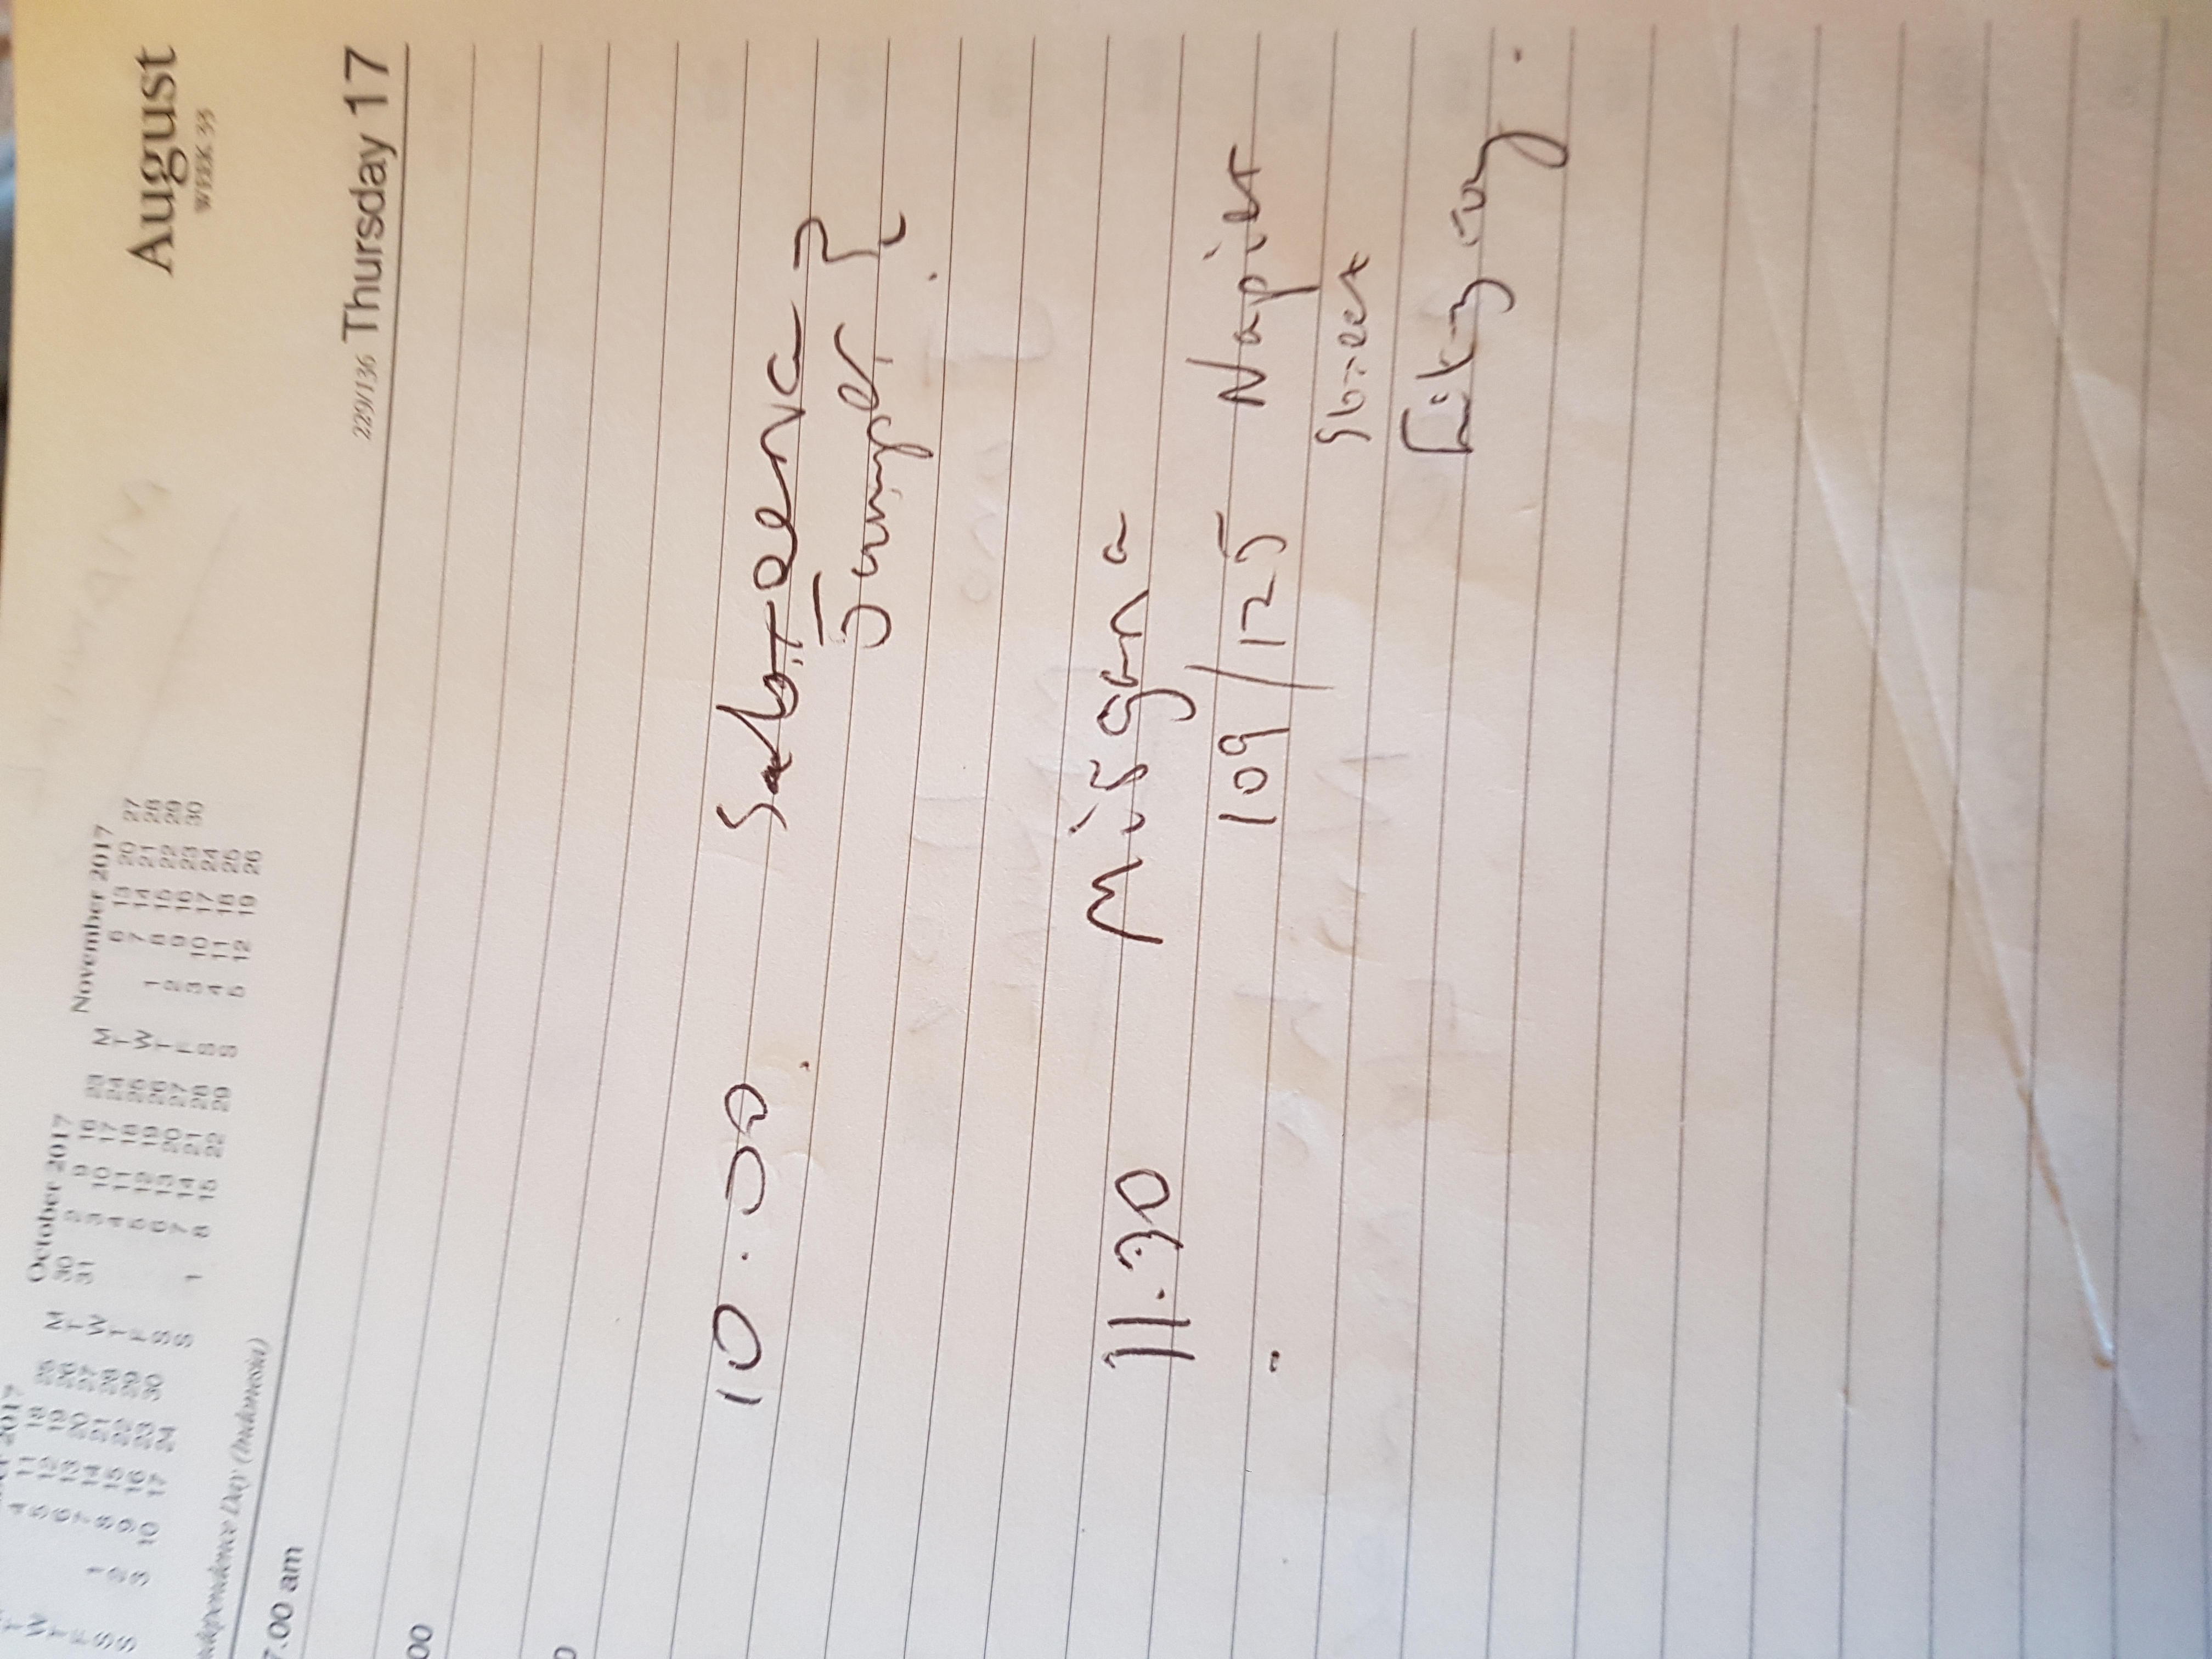 August
WEEK 33
229/136 Thursday 17
October 2017
M 30 2 9 16 23
T 31 3 10 17 24
W 4 11 18 25
T 5 12 19 26
F 6 13 20 27
S 7 14 21 28
S 1 8 15 22 29
November 2017
M 6 13 20 27
T 7 14 21 28
W 1 8 15 22 29
T 2 9 16 23 30
F 3 10 17 24
S 4 11 18 25
S 5 12 19 26
Independence Day (Indonesia)
7.00 am
10.00
Jumper
11.30 Misgana
109/125 Napier
Street
Fitzroy.